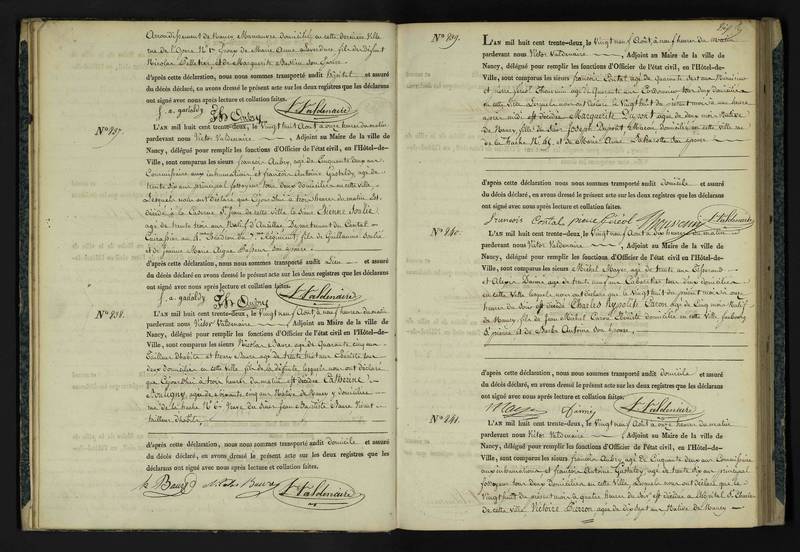 Arrondissement de Nancy, Manœuvre domicilié en cette dernière Ville
rue de l'Orme N° 17 Époux de Marie Anne fils de défunt
Nicolas Pelletier, et de Marguerite son Épouse.
d'après cette déclaration, nous nous sommes transporté audit hôpital et assuré
du décès déclaré, en avons dressé le présent acte sur les deux registres que les déclarans
ont signé avec nous après lecture et collation faites.
f. a. gastaldy Fis Aubry V. Valdenaire
N° 237.
L'AN mil huit cent trente-deux, le Vingt huit Août à onze heures du matin
pardevant nous Victor Valdenaire, Adjoint au Maire de la ville de
Nancy, délégué pour remplir les fonctions d'Officier de l'état civil, en l'Hôtel-de-
Ville, sont comparus les sieurs françois Aubry, agé de Cinquante deux ans
Commissaire aux inhumations et françois Antoine Gastaldy, agé de
trente dix ans principal fossoyeur tous deux domiciliés en cette ville
Lesquels nous ont déclaré que Cejourd'hui à trois heures du matin est
décédé à la Caserne St Jean de cette ville le Sieur Étienne Soulié
agé de trente trois ans Natif d'Aurillac Département du Cantal
Cuirassier au Régiment, fils de Guillaume Soulié
et de Jeanne Marie son épouse.
d'après cette déclaration, nous nous sommes transporté audit Lieu et assuré
du décès déclaré en avons dressé le présent acte sur les deux registres que les déclarans
ont signé avec nous après lecture et collation faites.
f. a. gastaldy Fis Aubry V. Valdenaire
N° 238.
L'AN mil huit cent trente-deux, le Vingt neuf Août, à neuf heures du matin
pardevant nous Victor Valdenaire, Adjoint au Maire de la ville de
Nancy, délégué pour remplir les fonctions d'Officier de l'état civil, en l'Hôtel-de-
Ville, sont comparus les sieurs Nicolas Baure agé de Quarante cinq ans
Tailleur d'habits et Henry Baure agé de trente huit ans Ébéniste tous
deux domiciliés en cette ville fils de la défunte, lesquels nous ont déclaré
que Cejourd'hui à trois heures du matin est décédée Catherine
Bouligny, agée de soixante cinq ans Native de Nancy y domiciliée
rue de la hache N° 6 Veuve du Sieur Jean Baptiste Baure Vivant
tailleur d'habits,
d'après cette déclaration, nous nous sommes transporté audit domicile et assuré
du décès déclaré, en avons dressé le présent acte sur les deux registres que les
déclarans ont signé avec nous après lecture et collation faites.
h. Baure Nicolas Baure V. Valdenaire
N° 239.
L'AN mil huit cent trente-deux, le Vingt neuf Août, à neuf heures du matin
pardevant nous Victor Valdenaire, Adjoint au Maire de la ville de
Nancy, délégué pour remplir les fonctions d'Officier de l'état civil, en l'Hôtel-de-
Ville, sont comparus les sieurs françois Contal agé de Quarante
et Cordonnier tous deux domiciliés
en cette Ville Lesquels nous ont déclaré que le Vingt huit du présent mois à une heure
après midi est décédée Marguerite Duport agée de deux mois Native
de Nancy, fille du Sieur Joseph Duport domicilié en cette ville rue
de la hache N° 45 et de Marie Anne son épouse
d'après cette déclaration nous nous sommes transporté audit domicile et assuré
du décès déclaré, en avons dressé le présent acte sur les deux registres que les déclarans
ont signé avec nous après lecture et collation faites.
francois Contal V. Valdenaire
N° 240.
L'AN mil huit cent trente-deux, le Vingt neuf Août à dix heures du matin
pardevant nous Victor Valdenaire, Adjoint au Maire de la ville de
Nancy, délégué pour remplir les fonctions d'Officier de l'état civil en l'Hôtel-de-
Ville, sont comparus les sieurs Michel Mayer agé de trente ans Tisserand
et agé de trente neuf ans Cabaretier tous deux domiciliés
en cette Ville lesquels nous ont déclaré que le Vingt huit du présent mois à onze
heures du soir est décédé Charles hyppolite Caron agé de Cinq mois Natif
de Nancy, fils de Jean Michel Caron Ébéniste domicilié en cette ville faubourg
St pierre et de Barbe Antoine son épouse,
d'après cette déclaration, nous nous sommes transporté audit domicile et assuré
du décès déclaré, en avons dressé le présent acte sur les deux registres que les déclarans
ont signé avec nous après lecture et collation faites.
V. Valdenaire
N° 241.
L'AN mil huit cent trente-deux, le Vingt neuf Août à onze heures du matin
pardevant nous Victor Valdenaire, Adjoint au Maire de la ville de
Nancy, délégué pour remplir les fonctions d'Officier de l'état civil, en l'Hôtel-de-
Ville, sont comparus les sieurs françois Aubry, agé de Cinquante deux ans Commissaire
aux inhumations et françois Antoine Gastaldy, agé de trente dix ans principal
fossoyeur tous deux Domiciliés en cette Ville, Lesquels nous ont déclaré que le
Vingt huit du présent mois à quatre heures du soir est décédée à l'hôpital St Charles
de cette ville Victoire Carron agée de dix sept ans Native de Nancy